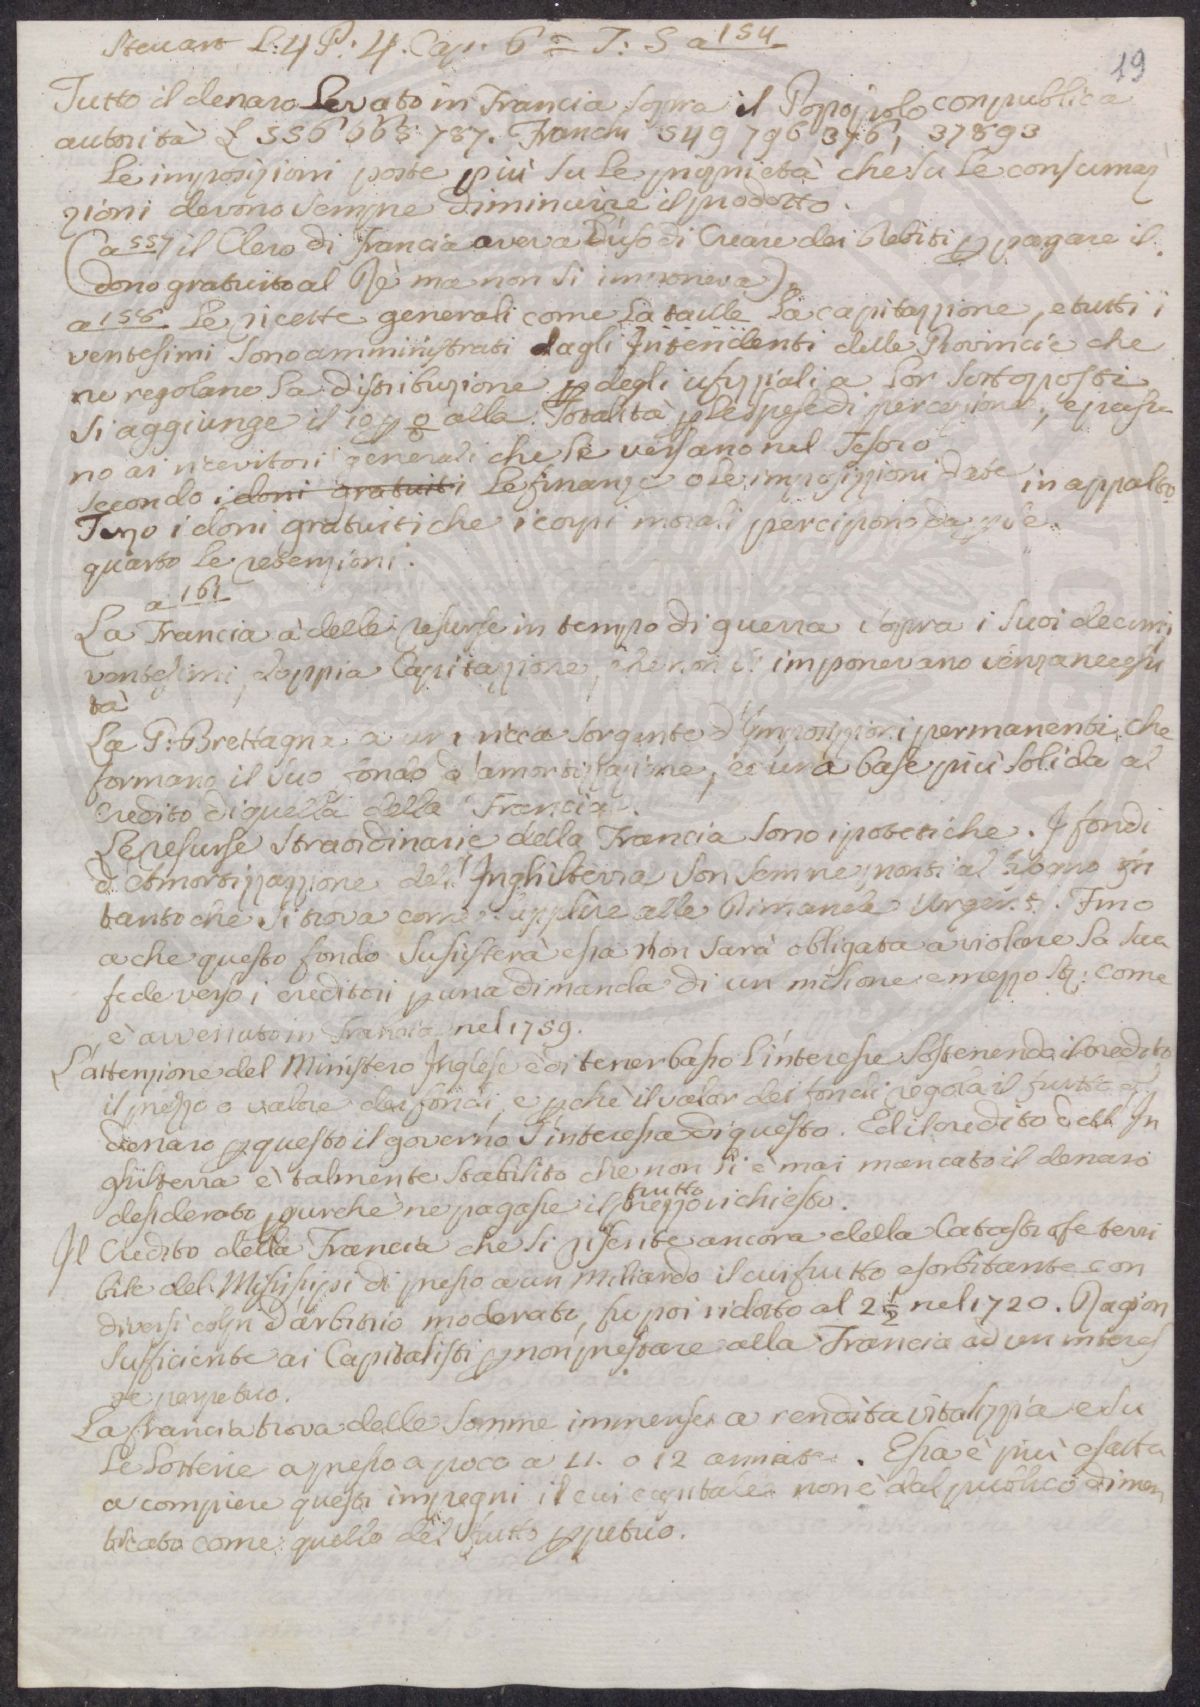 Steuart L: 4 P. 4. Cap. 6° = T: 5 a 154
19
Tutto il denaro Levato in Francia sopra il Popolo con publica
autorità £ 556 663 787. Franchi 549 796 376, 37893
Le imposizioni poste più su le proprietà che su le consumaz
zioni devono sempre diminuire il prodotto.
(a 557 il Clero di Francia aveva l'uso di Creare dei Debiti p pagare il
dono gratuito al Rè ma non si imponeva)
a 156 Le ricette generali come La taille La capitazzione, e tutti i
ventesimi sono amministrati dagli Intendenti delle Provincie che
ne regolano La distribuzione p degli ufizziali a Lor sottoposti
si aggiunge il 10 p % alla Totalità p le spese di percezione, e passa
no ai ricevitori generali che le versano nel Tesoro
secondo i doni gratuiti Le finanze o le imposizzioni date in appalto
Terzo i doni gratuiti che i corpi morali percipono da p se.
quarto Le retenzioni.
a 161
La Francia à delle risurse in tempo di guerra sopra i suoi decimi
ventesimi, doppia Capitazzione, che non si imponevano senza necessi
tà
La G: Brettagna a una ricca sorgente d'Imposizzioni permanenti che
formano il suo fondo d'amortizzazione, è una base più solida al
credito di quella della Francia.
Le risurse straordinarie della Francia sono ipotetiche. I fondi
d'Amortizzazzione dell'Inghilterra son sempre pronti al bisogno in
tanto che si trova come supplire alle Dimande Urgenti. Fino
a che questo fondo sussisterà essa non sarà obligata a violare La sua
fede verso i creditori p una dimanda di un milione e mezzo St: come
è avvenuto in Francia nel 1759.
L'attenzione del Ministero Inglese è di tener basso L'interesse sostenendo il credito
il prezzo o valore dei fondi, e pchè il valor dei fondi regola il frutto del
denaro p questo il governo s'interessa di questo. Ed il credito dell' In
ghilterra è talmente stabilito che non li è mai mancato il denaro
desiderato purchè ne pagasse il prezzo frutto richiesto.
Il Credito della Francia che si risente ancora della Catastrofe terri
bile del Missisipi di presso a un Miliardo il cui frutto esorbitante con
diversi colpi d'arbitrio moderato, fu poi ridotto al 2 1/2 nel 1720. Ragion
sufficiente ai Capitalisti p non prestare alla Francia ad un interes
se perpetuo.
La francia trova delle somme immense a rendita vitalizzia e su
Le Lotterie a presso a poco a 11. o 12 annate. Essa è più esatta
a compiere questi impegni il cui capitale non è dal publico dimen
ticato come quello del frutto ppetuo.